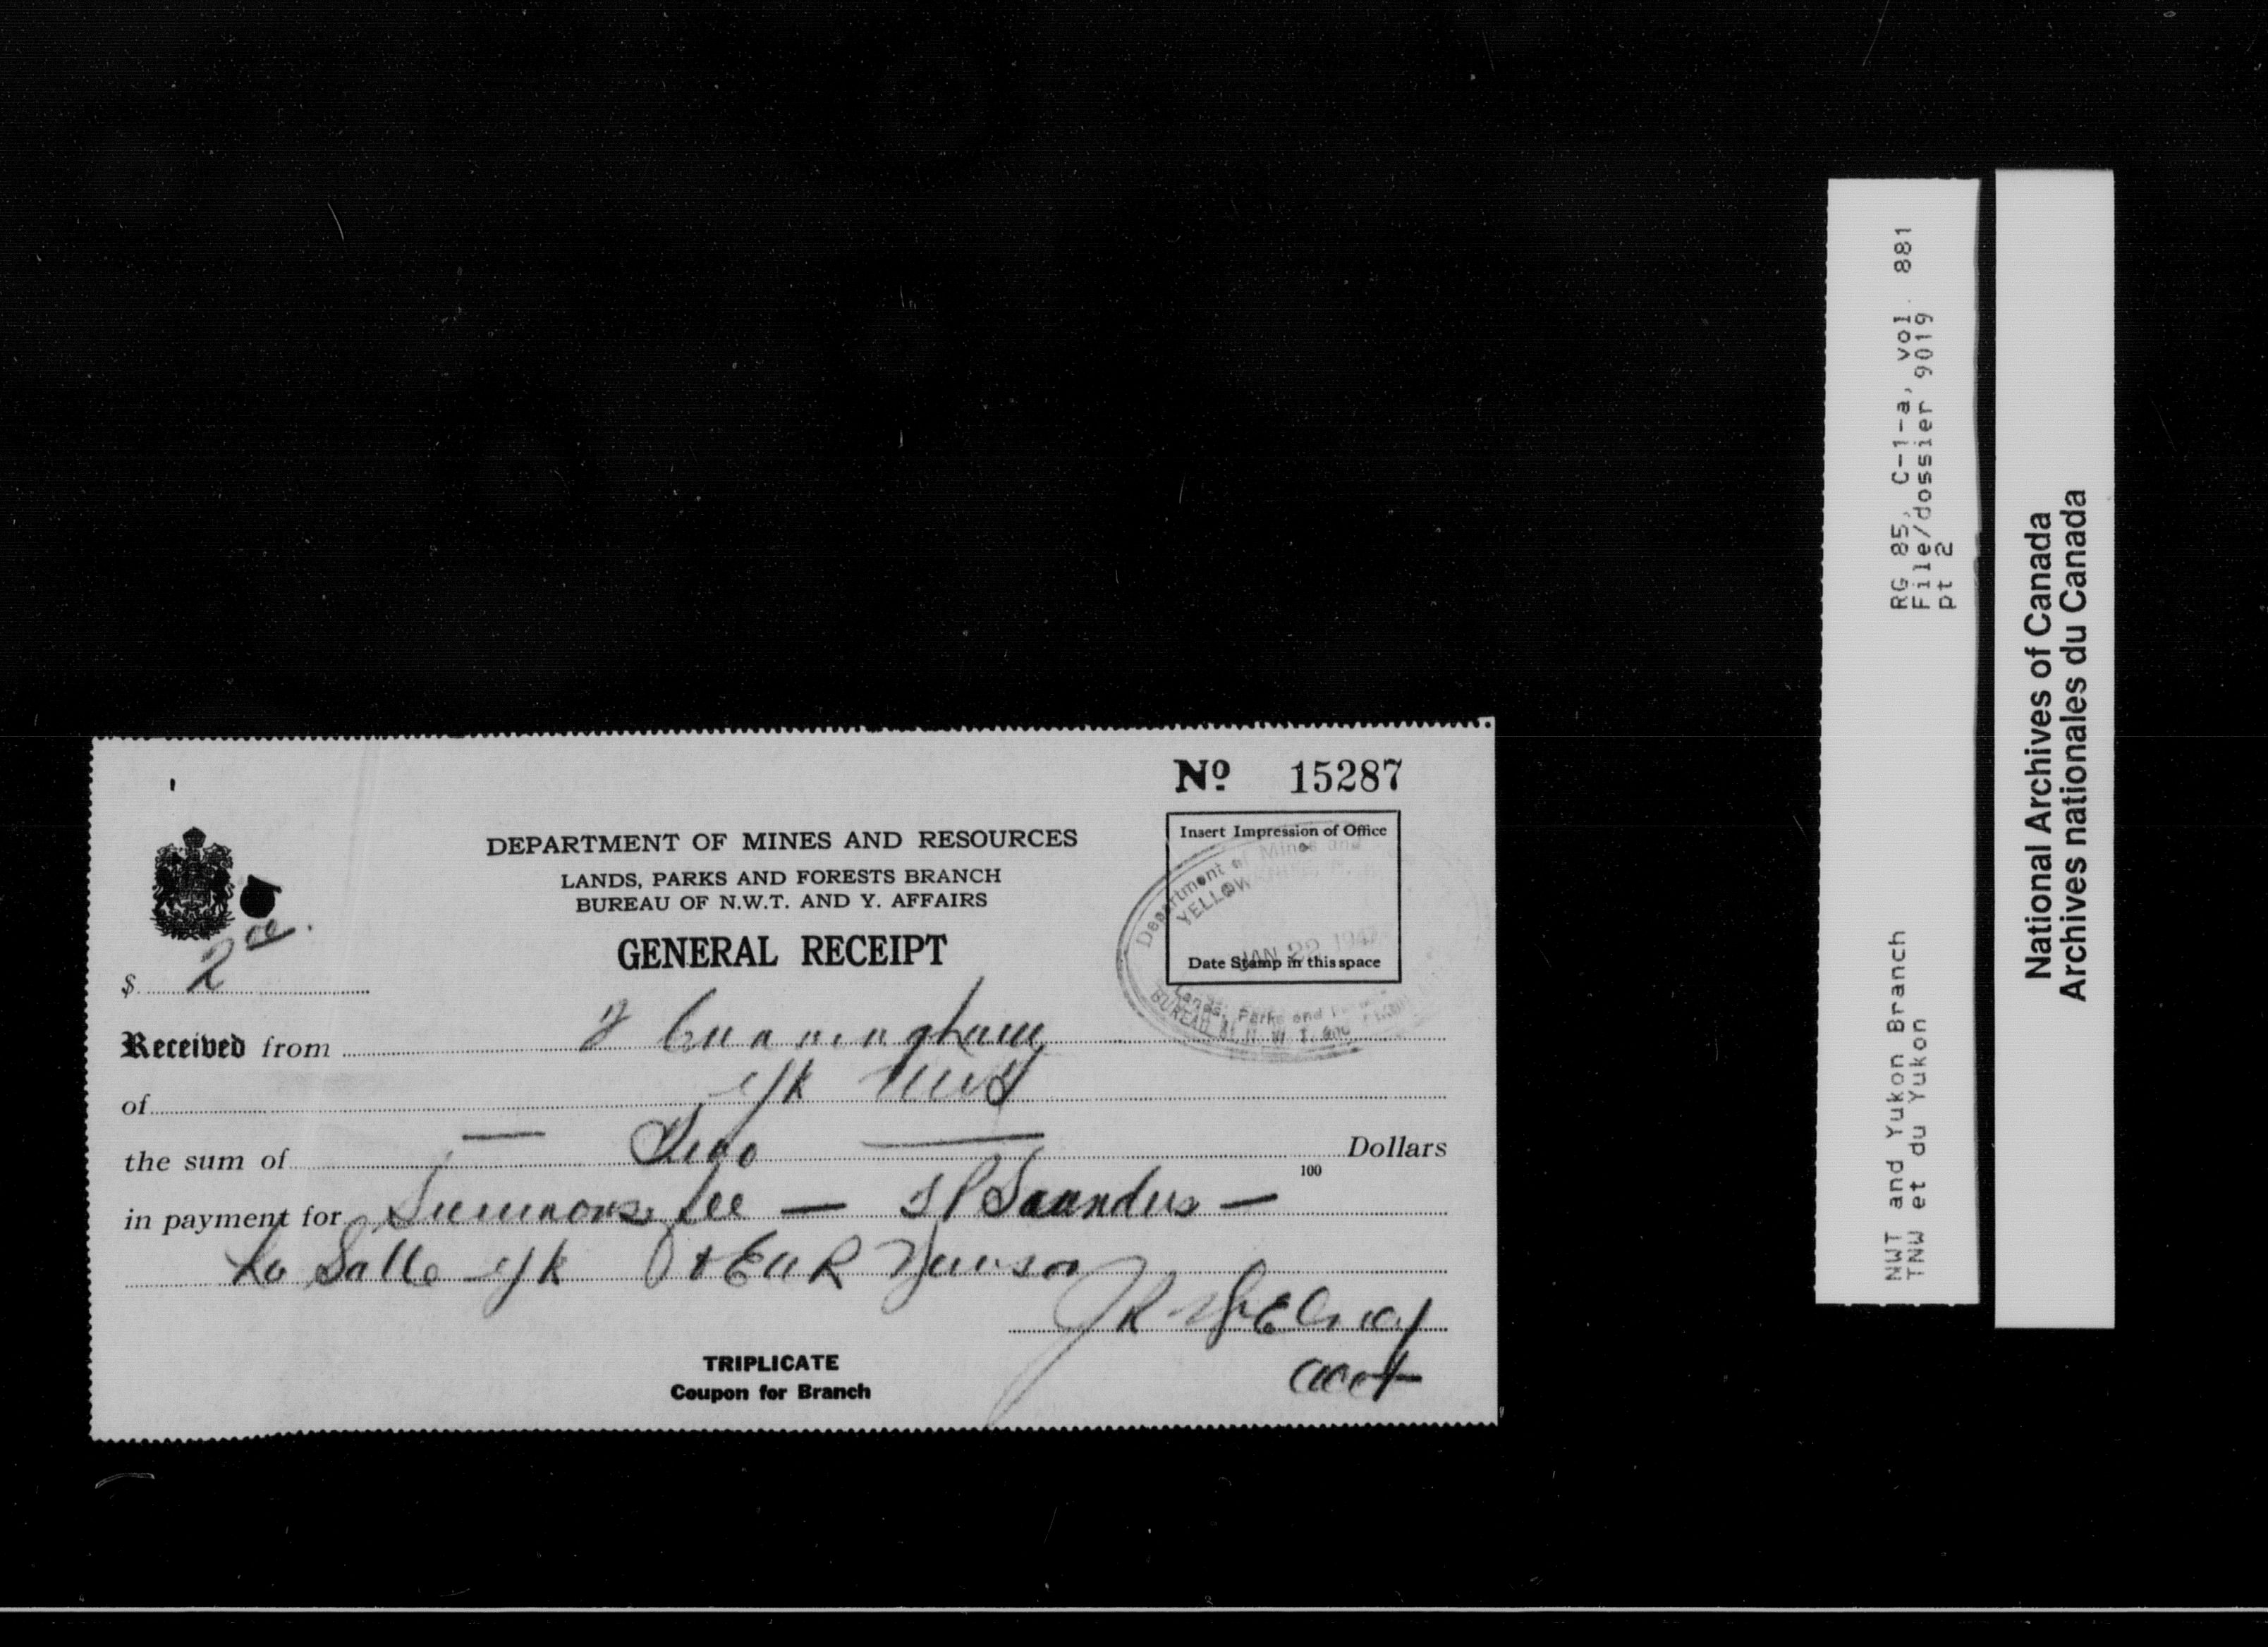 Nº 15287
Insert Impression of Office
Date Stamp in this space
Department of Mines and
YELLOWKNIFE
JAN 22 1947
Lands, Parks and
BUREAU of N. W. T. and
DEPARTMENT OF MINES AND RESOURCES
LANDS, PARKS AND FORESTS BRANCH
BUREAU OF N.W.T. AND Y. AFFAIRS
GENERAL RECEIPT
$ 2 00
Received from Cunningham
of Yk NWT
the sum of — Two — Dollars
100
in payment for Summons fee — Saunders —
La Salle Yk
JR
acct
TRIPLICATE
Coupon for Branch
RG 85, C-1-a, vol. 881
File/dossier 9019
pt 2
NWT and Yukon Branch
TNW et du Yukon
National Archives of Canada
Archives nationales du Canada